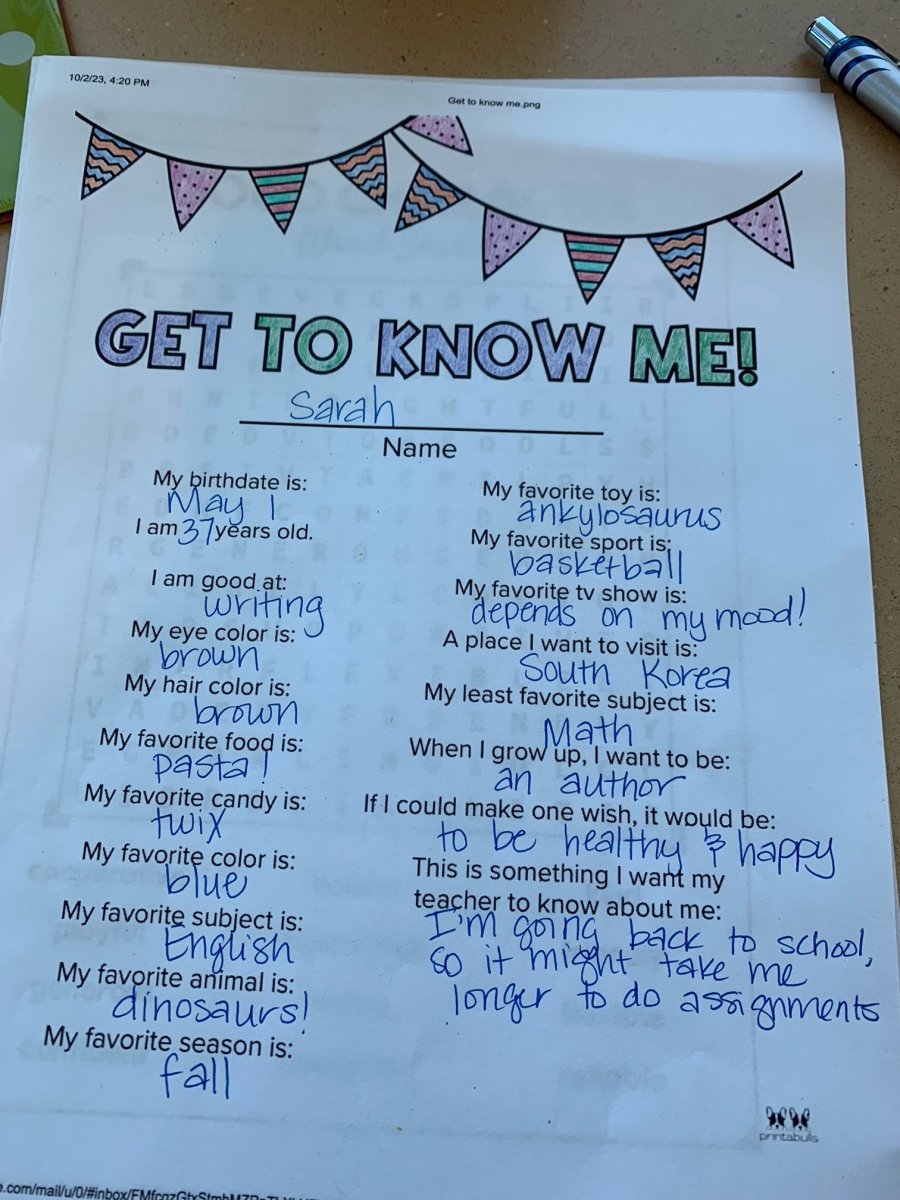 10/2/23, 4:20 PM
Get to know me.png
GET TO KNOW ME!
Sarah
Name
My birthdate is:
May 1
I am 37 years old.
I am good at:
writing
My eye color is:
brown
My hair color is:
brown
My favorite food is:
pasta!
My favorite candy is:
twix
My favorite color is:
blue
My favorite subject is:
English
My favorite animal is:
dinosaurs!
My favorite season is:
fall
My favorite toy is:
ankylosaurus
My favorite sport is:
basketball
My favorite tv show is:
depends on my mood!
A place I want to visit is:
South Korea
My least favorite subject is:
Math
When I grow up, I want to be:
an author
If I could make one wish, it would be:
to be healthy & happy
This is something I want my
teacher to know about me:
I'm going back to school,
so it might take me
longer to do assignments
printabulls